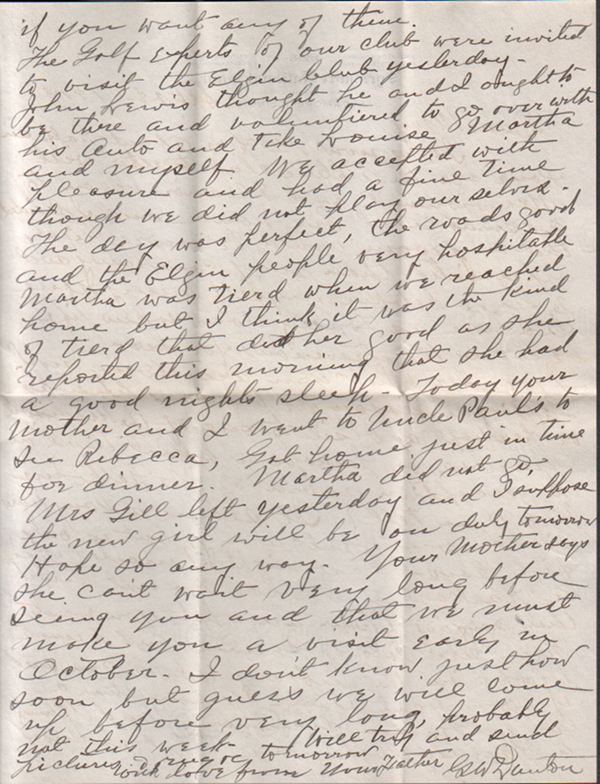 if you want any of them.
The Golf Experts of our club were invited
to visit the Elgin blub yesterday -
John Lewis thought he and I ought to
be there and voluntiered to go over with
his Auto and take Louise, Martha
and myself. We accepted with
pleasure and had a fine time
though we did not play our selves.
The day was perfect, the roads good
and the Elgin people very hospitable
Martha was tierd when we reached
home but I think it was the kind
of tierd that did her good as she
reported this morning that she had
a good nights sleep - Today your
Mother and I went to Uncle Paul's to
see Rebecca, Got home just in time
for dinner. Martha did not go.
Mrs Gill left yesterday and I suppose
the new girl will be on duty tomorrow
Hope so any way. Your Mother says
she cant wait very long before
seeing you and that we must
make you a visit early in
October - I don't know just how
soon but guess we will come
up before very long, probably
not this week - Will try and send
pictures tomorrow
with love from Your Father